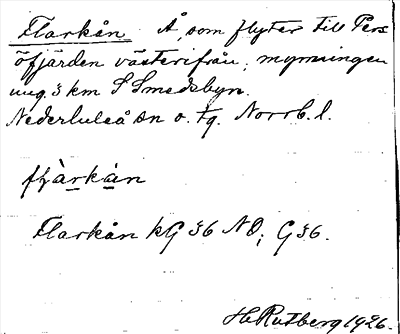 Flarkån Å, som flyter till Pers
öfjärden västerifrån, mynningen
ung. 3 km S Smedsbyn.
Nederluleå sn o. tg. Norrb. l.
Flarkån kG 36 NO; G36.
H. Rutberg 1926.